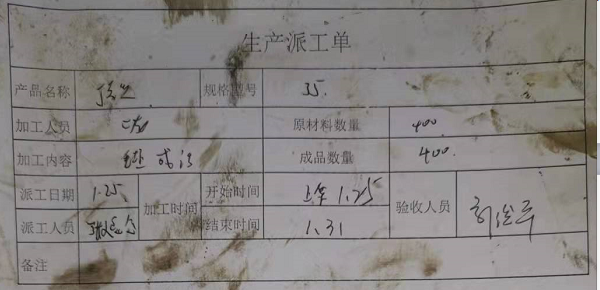 生产派工单
产品名称 规格型号 35.
加工人员 原材料数量 400
加工内容 成品数量 400.
派工日期 1.25 加工时间 开始时间 上午 1.25 验收人员
派工人员 结束时间 1.31
备注